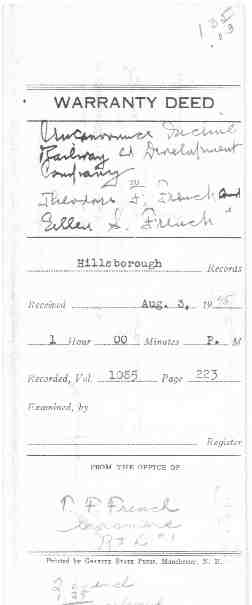 135
.13
WARRANTY DEED
Uncanoonuc Incline
Railway & Development
Company
to
Theodore F. French and
Ellen S. French
Hillsborough Records
Received Aug. 3, 1945
1 Hour 00 Minutes P. M
Recorded, Vol. 1055 Page 223
Examined, by
Register
FROM THE OFFICE OF
T. F. French
Printed by Granite State Press, Manchester, N. H.